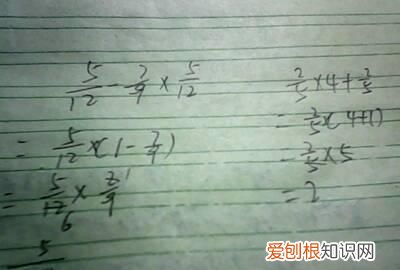 5/12 - 7/9 × 5/12
= 5/12 × (1 - 7/9)
= 5/12 × 2/9
6 1
5
2/5 × 4 + 2/5
= 2/5 × (4+1)
= 2/5 × 5
= 2
爱刨根知识网